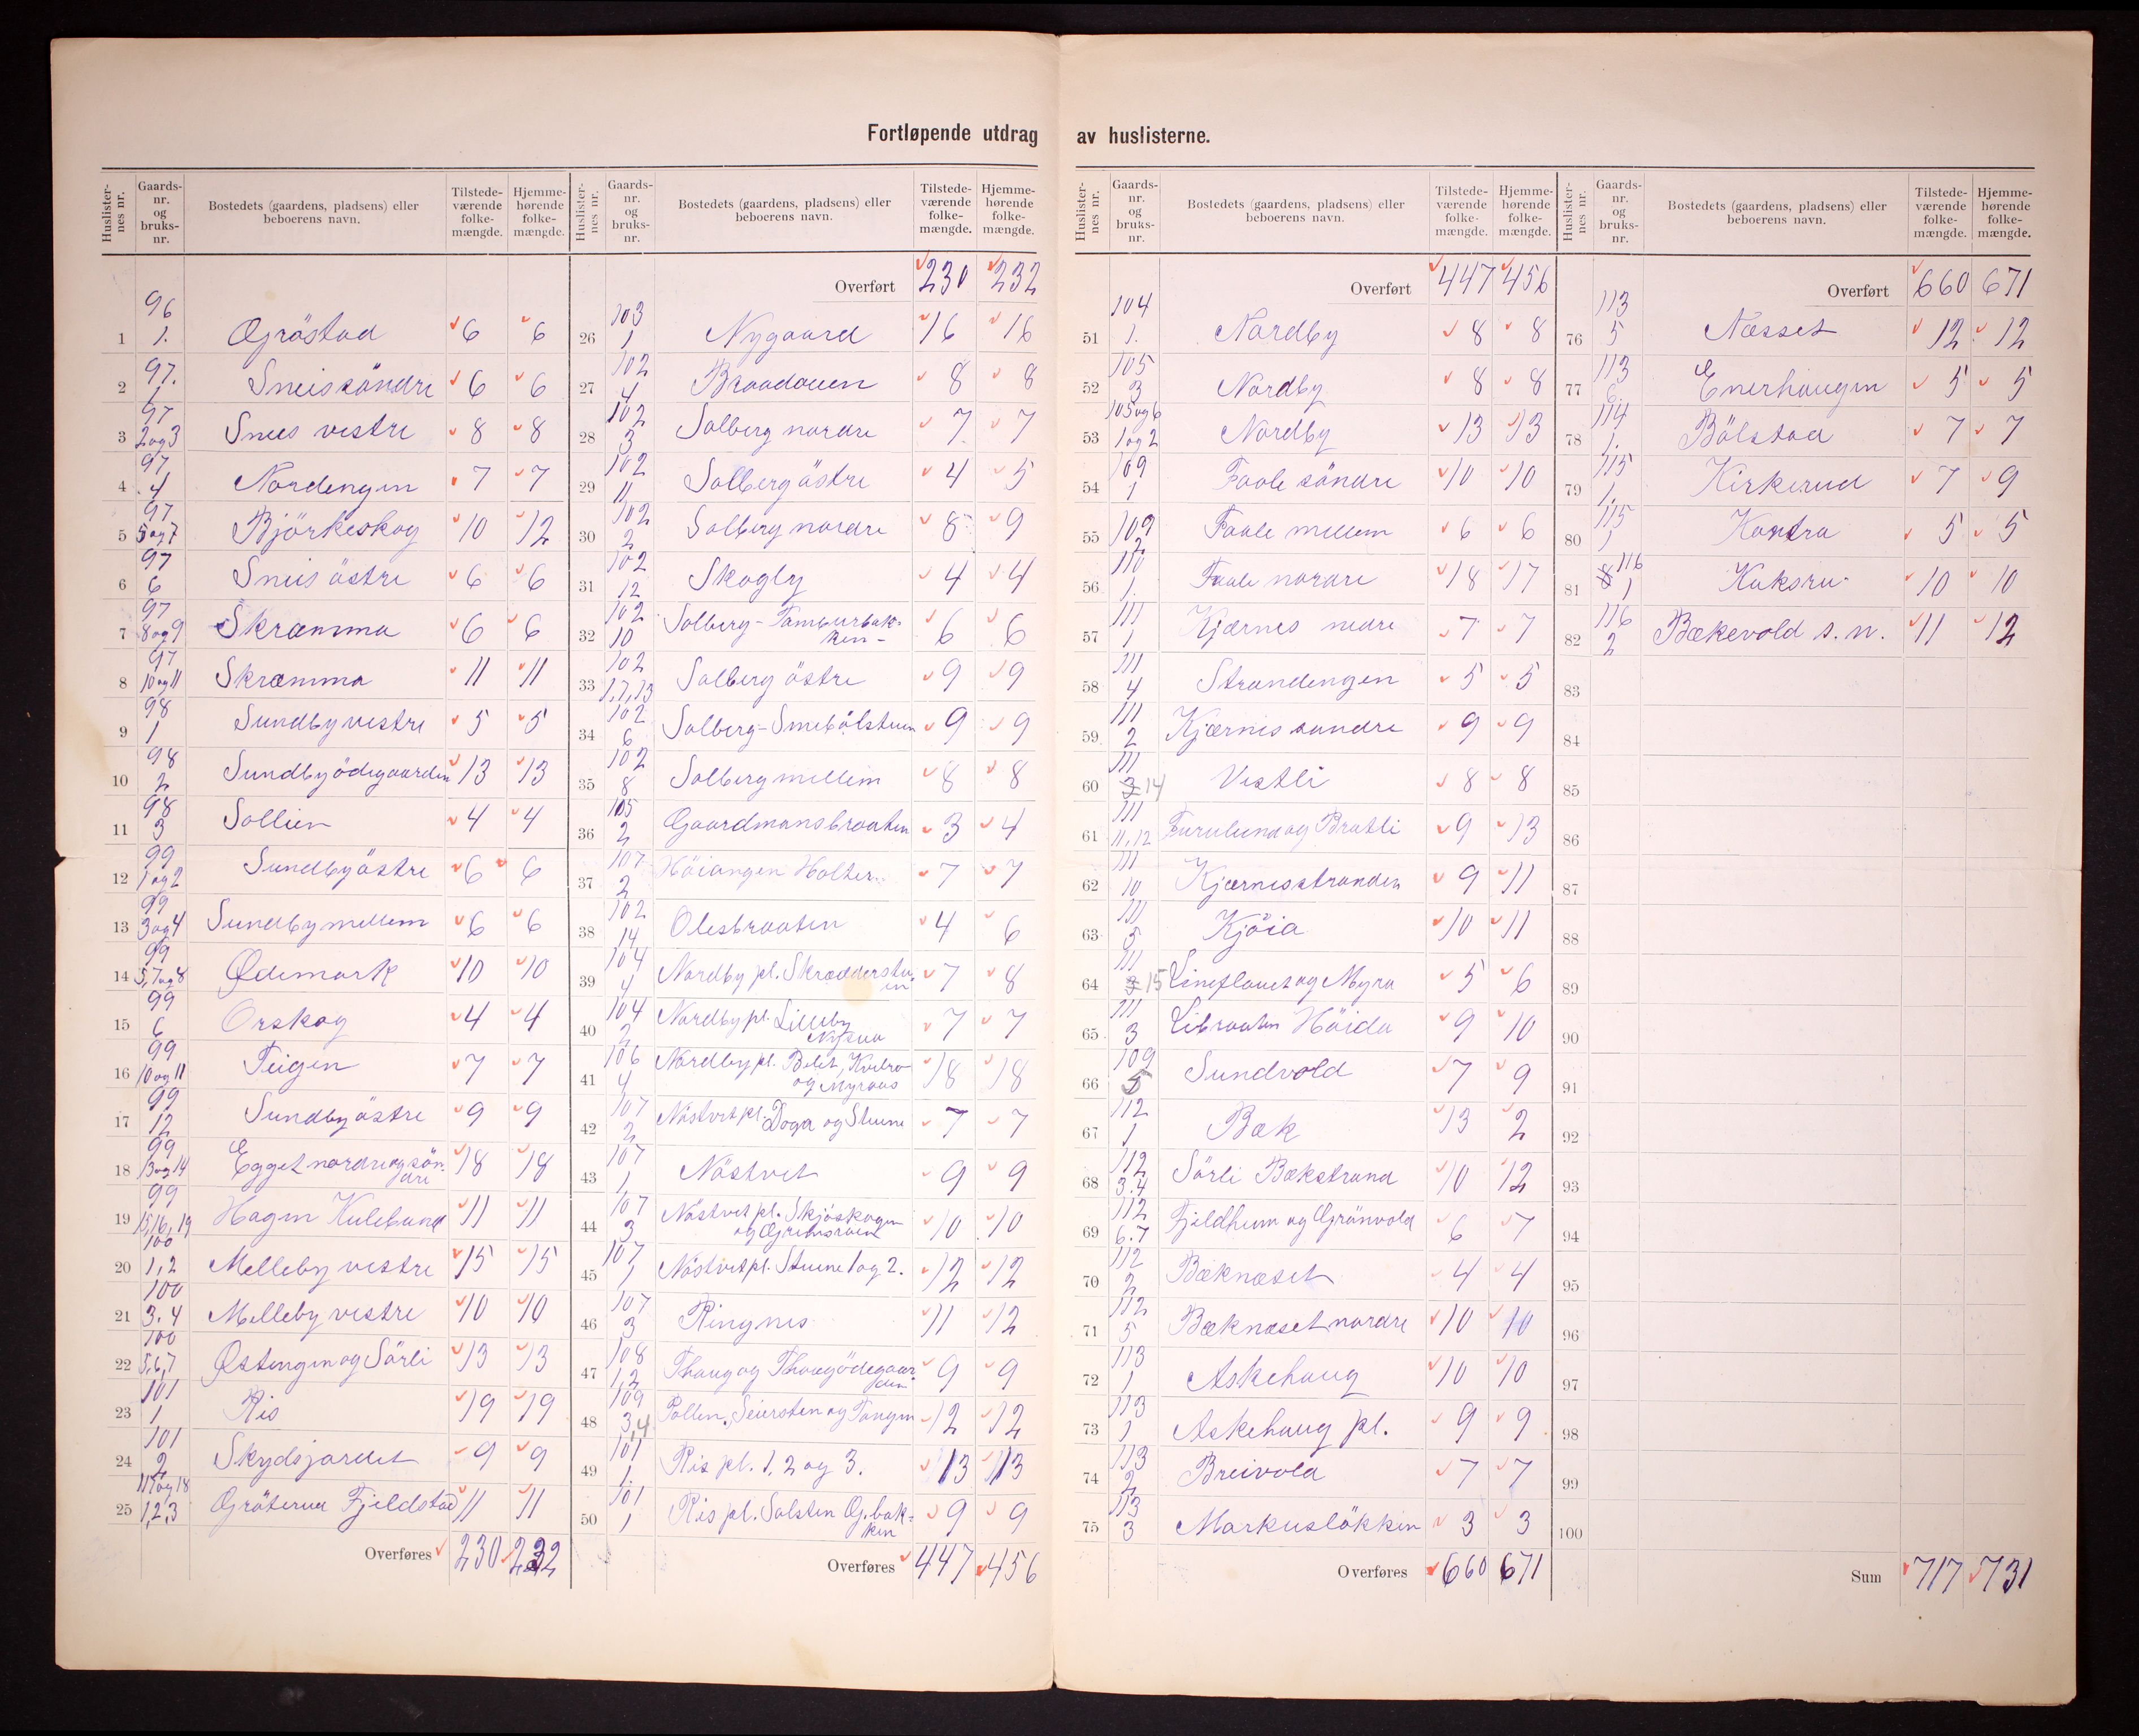 Fortløpende utdrag av huslisterne.
Huslister-nes nr. Gaards-nr. og bruks-nr. Bostedets (gaardens, pladsens) eller beboerens navn. Tilstede-værende folke-mængde. Hjemme-hørende folke-mængde.
1 96 1. Gråstad 6 6
2 97. 1 Sneis søndre 6 6
3 97 2 og 3 Sneis vestre 8 8
4 97 4 Nordengen 7 7
5 97 5 og 7 Björkeskog 10 12
6 97 6 Sneis östre 6 6
7 97 8 og 9 Skramma 6 6
8 97 10 og 11 Skramma 11 11
9 98 1 Sundby vestre 5 5
10 98 2 Sundbyödegaarden 13 13
11 98 3 Sollien 4 4
12 99 1 og 2 Sundby östre 6 6
13 99 3 og 4 Sundby mellem 6 6
14 99 5, 7 og 8 Ødemark 10 10
15 99 6 Orskog 4 4
16 99 10 og 11 Teigen 7 7
17 99 12 Sundby östre 9 9
18 99 13 og 14 Egget nordre og sön dre 18 18
19 99 15, 16, 19 Hagen Kulebund 11 11
20 100 1, 2 Melleby vestre 15 15
21 100 3. 4 Melleby vestre 10 10
22 100 5, 6, 7 Østengen og Sörli 13 13
23 101 1 Ris 19 19
24 101 2 Skydsjordet 9 9
25 117 og 18 1, 2, 3 Gråterud Fjeldstad 11 11
Overføres 230 232
Huslister-nes nr. Gaards-nr. og bruks-nr. Bostedets (gaardens, pladsens) eller beboerens navn. Tilstede-værende folke-mængde. Hjemme-hørende folke-mængde.
Overført 230 232
26 103 1 Nygaard 16 16
27 102 4 Braadouen 8 8
28 102 3 Solberg nordre 7 7
29 102 11 Solberg östre 4 5
30 102 2 Solberg nordre 8 9
31 102 12 Skogly 4 4
32 102 10 Solberg-Tamburbak-
ken - 6 6
33 102 1, 7, 13 Solberg östre 9 9
34 102 6 Solberg-Smebölstuen 9 9
35 102 8 Solberg mellem 8 8
36 105 2 Gaardmansbraaten 3 4
37 107 2 Höiangen Holter 7 7
38 102 14 Olesbraaten 4 6
39 104 4 Nordby pl. Skrædderstu
en 7 8
40 104 2 Nordby pl. Lilleby
Nysua 7 7
41 106 4 Nordby pl. Bilet,
og Myraas 18 18
42 107 2 Nöstvet pl. Doga og Stuene 7 7
43 107 1 Nöstvet 9 9
44 107 3 Nöstvet pl. Skjöskogen
og Grensroen 10 10
45 107 1 Nöstvet pl. Stuene 1 og 2. 12 12
46 107 3 Ringnes 11 12
47 108 1, 2 Thaug og Thaugödegaar
den 9 9
48 109 3, 4 Pollen, Seiersten og Tangen 12 12
49 101 1. Ris pl. 1, 2 og 3. 13 13
50 101 1 Ris pl. Solsten Gj. bak-
ken 9 9
Overføres 447 456
Huslister-nes nr. Gaards-nr. og bruks-nr. Bostedets (gaardens, pladsens) eller beboerens navn. Tilstede-værende folke-mængde. Hjemme-hørende folke-mængde.
Overført 447 456
51 104 1. Nordby 8 8
52 105 3 Nordby 8 8
53 105 og 6 1 og 2 Nordby 13 13
54 109 1 Faale söndre 10 10
55 109 2 Faale mellem 6 6
56 110 1. Faale nordre 18 17
57 111 1 Kjærnes nedre 7 7
58 111 4 Strandengen 5 5
59 111 2 Kjærnes söndre 9 9
60 111 3 14 Vestli 8 8
61 111 11, 12 Furulund og Bratli 9 13
62 111 10 Kjærnesstranden 9 11
63 111 5 Kjöia 10 11
64 111 3 15 Lineflauet og Myra 5 6
65 111 3 Libraaten Höida 9 10
66 109 5 Sundvold 7 9
67 112 1 Bæk 13 2
68 112 3. 4 Sörli Bækstrand 10 12
69 112 6. 7 Fjeldhum og Grönvold 6 7
70 112 2 Bæknæset 4 4
71 112 5 Bæknæset nordre 10 10
72 113 1 Askehaug 10 10
73 113 1 Askehaug pl. 9 9
74 113 2 Breivold 7 7
75 113 3 Markuslökken 3 3
Overføres 660 671
Huslister-nes nr. Gaards-nr. og bruks-nr. Bostedets (gaardens, pladsens) eller beboerens navn. Tilstede-værende folke-mængde. Hjemme-hørende folke-mængde.
Overført 660 671
76 113 5 Næsset 12 12
77 113 6 Enerhaugen 5 5
78 114 1. Bölstad 7 7
79 115 1. Kirkerud 7 9
80 115 1 Kontra 5 5
81 116 8 1 Kuksru 10 10
82 116 2 Bækevold s. n. 11 12
83
84
85
86
87
88
89
90
91
92
93
94
95
96
97
98
99
100
Sum 717 731